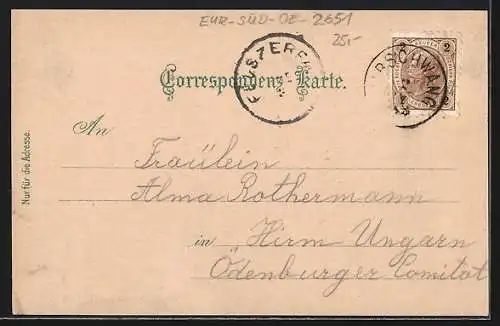 EUR-SÜD-OE-2651
25,-
Correspondenz-Karte.
2
Nur für die Adresse.
An
Fräulein
Alma Rothermann
in Hirm Ungarn
Ödenburger Comitat